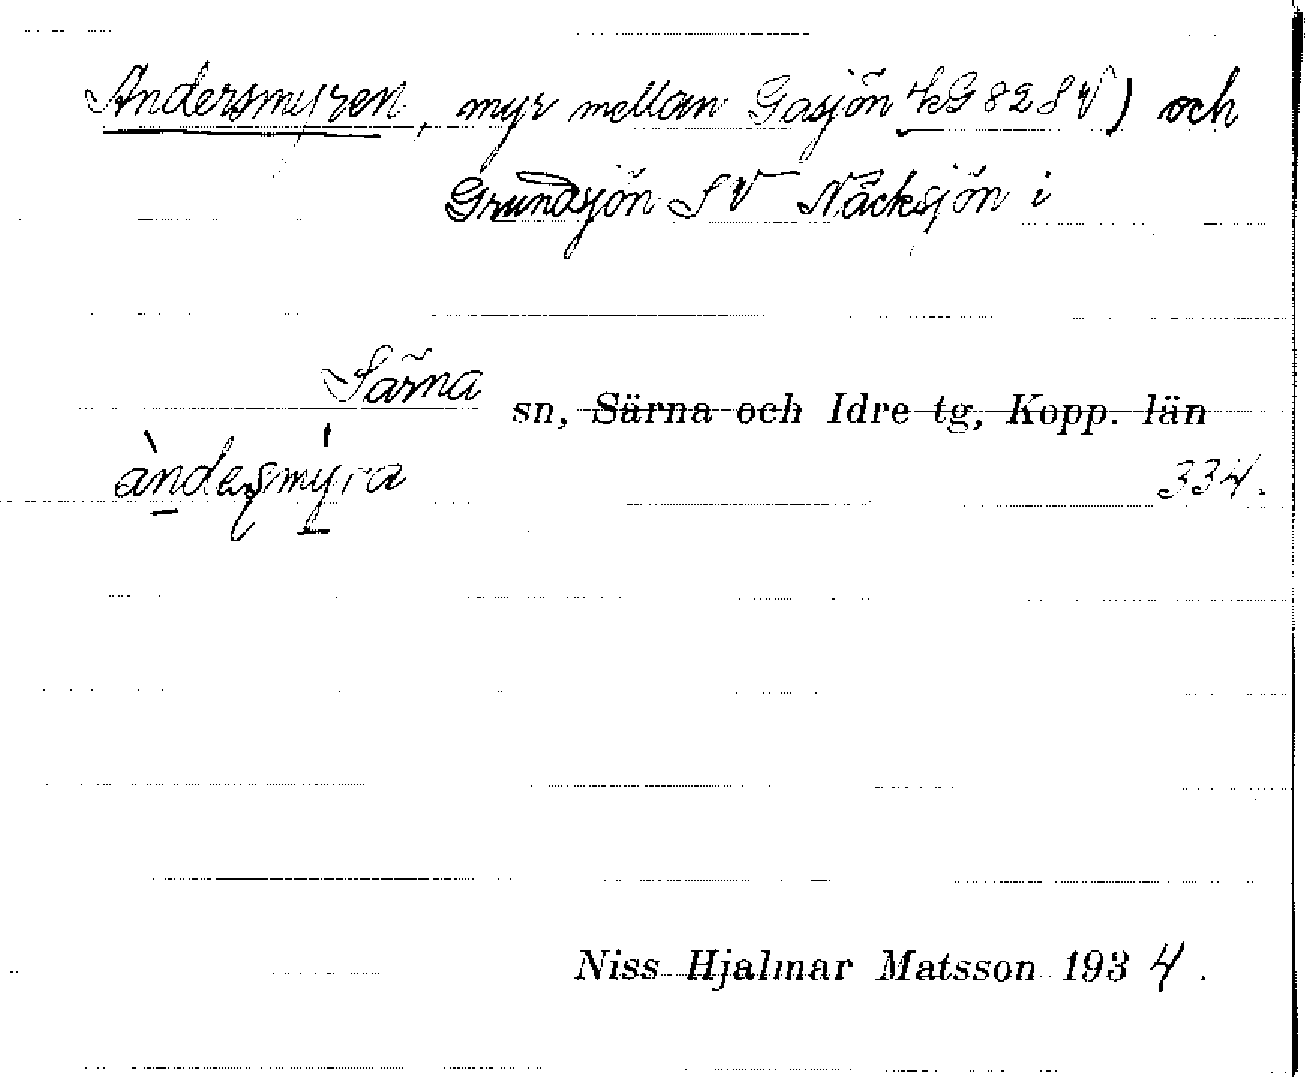 Andersmyren, myr mellan Gasjön 4G 82 SV) och
Grundsjön SV Näcksjön i
Särna sn, Särna och Idre tg, Kopp. län
àndeʂmýra
334.
Niss Hjalmar Matsson 1934.